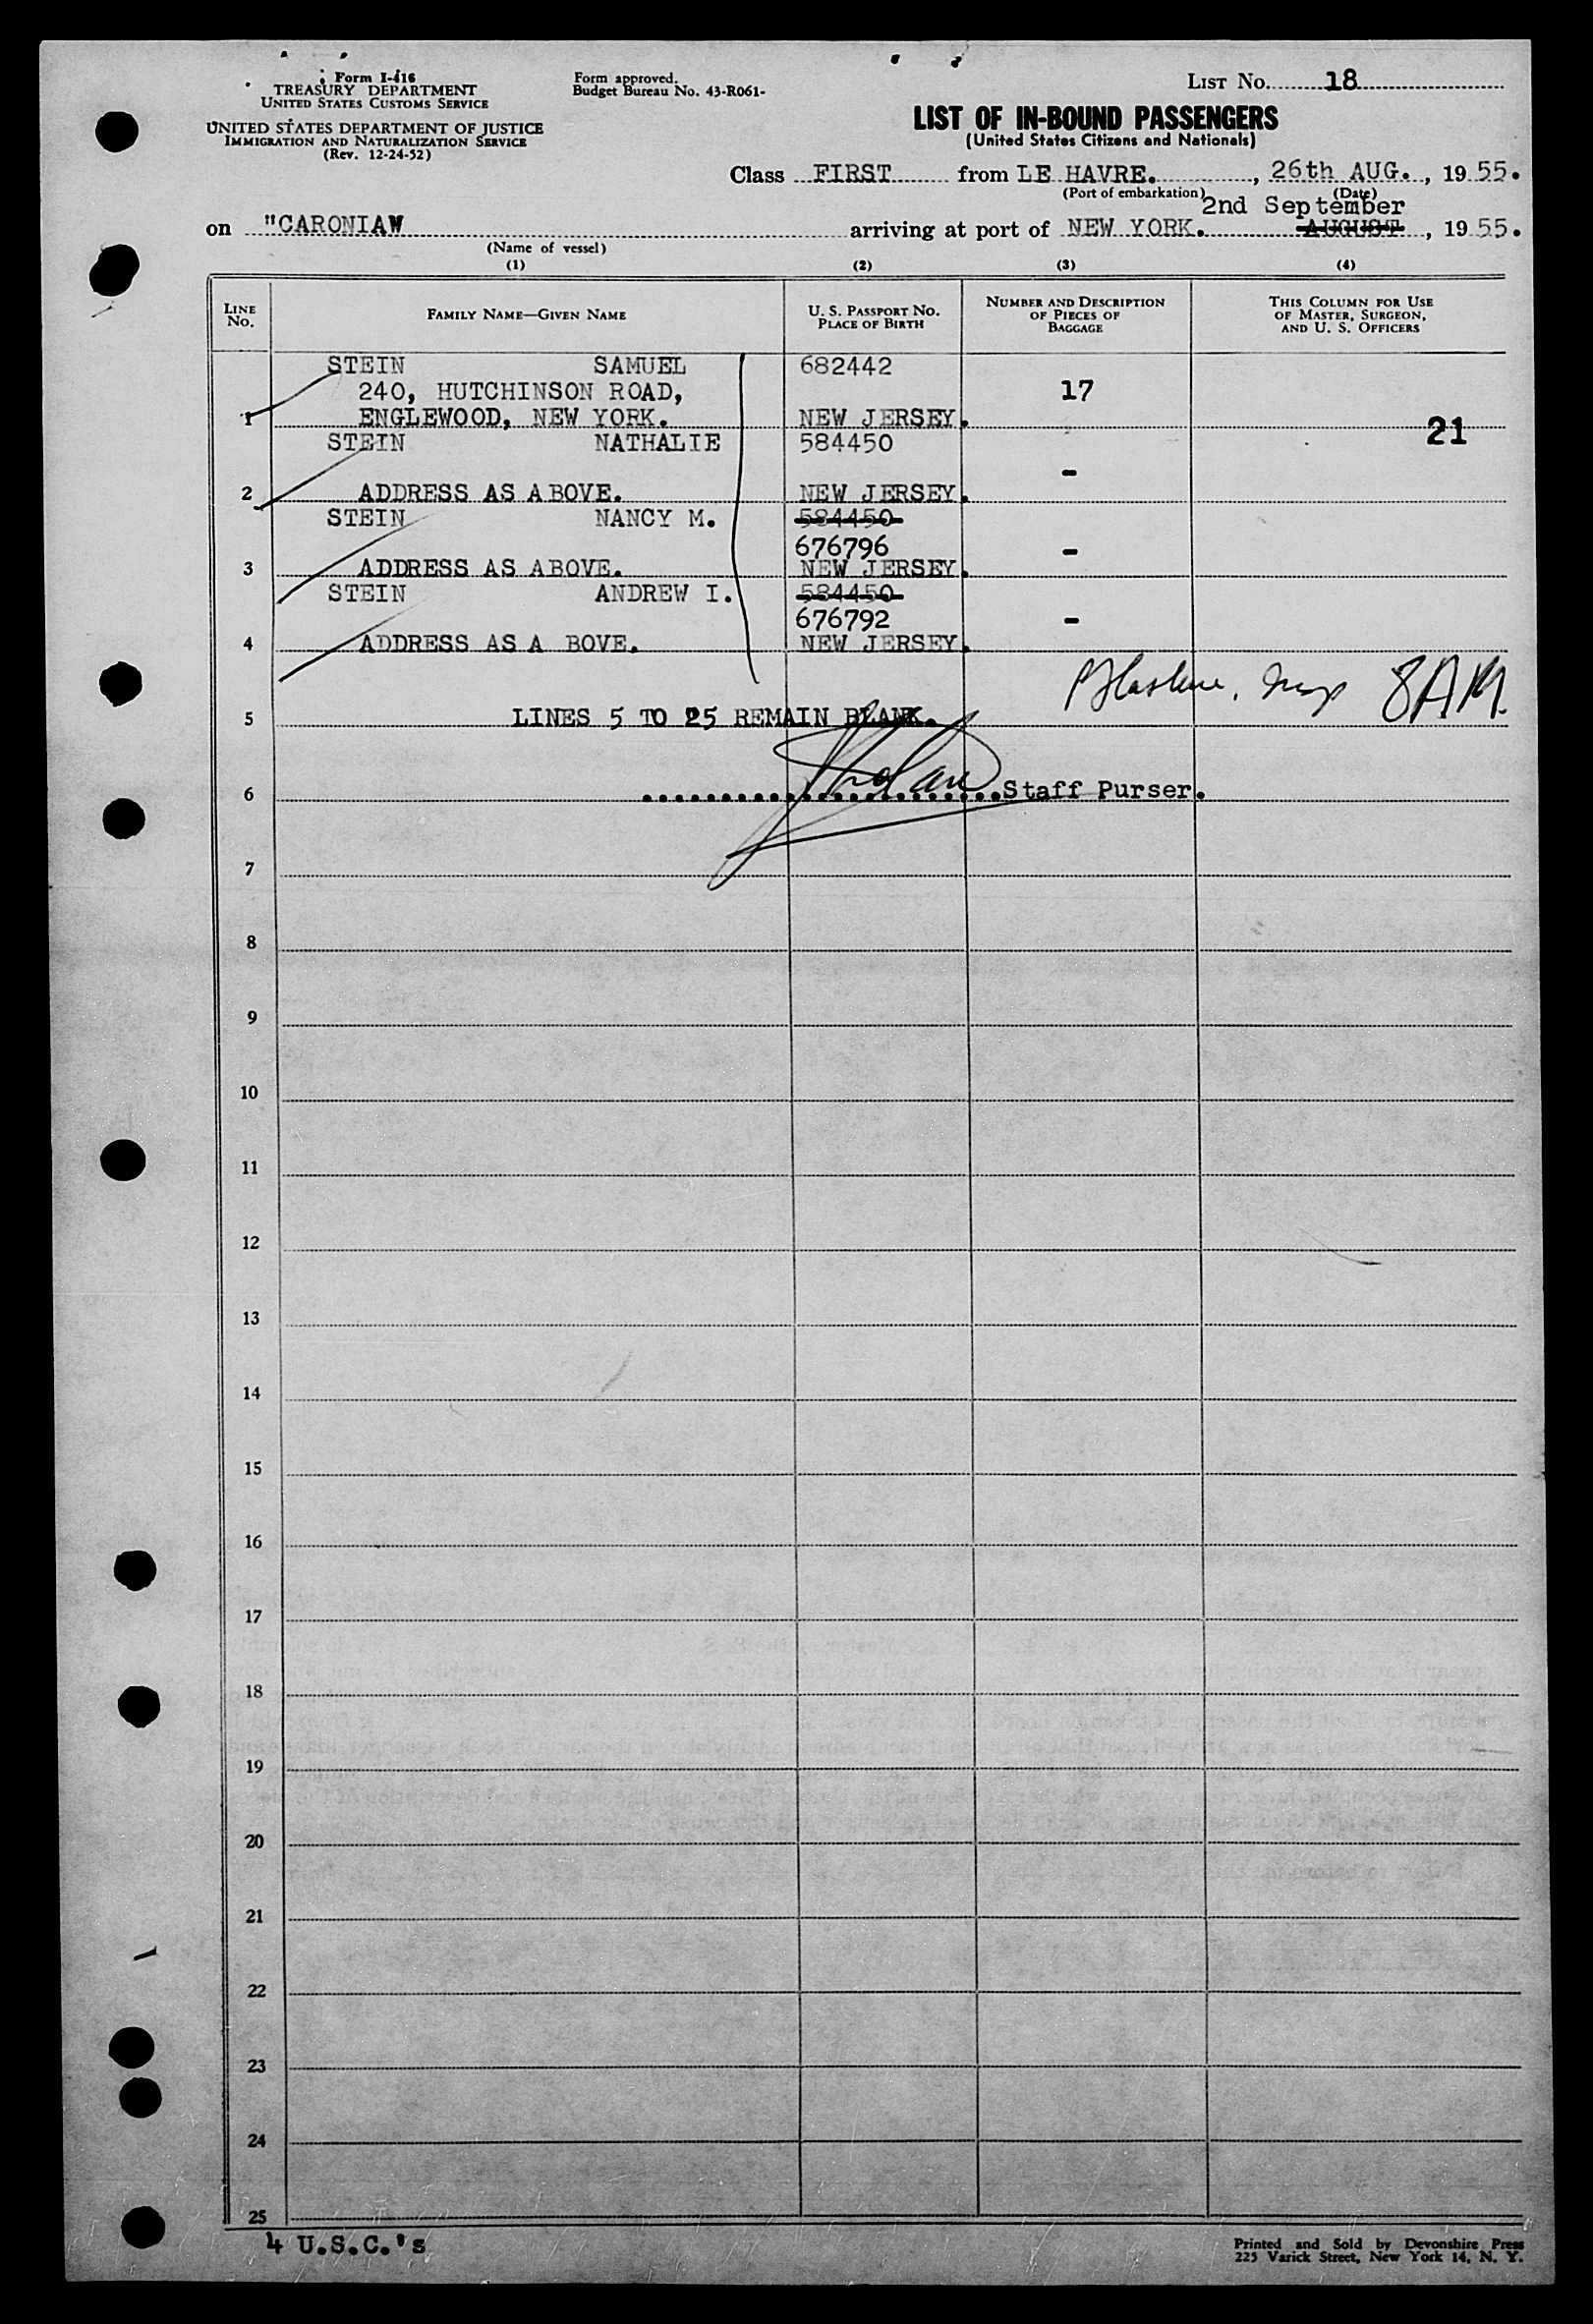 Form I-416
TREASURY DEPARTMENT
UNITED STATES CUSTOMS SERVICE
UNITED STATES DEPARTMENT OF JUSTICE
IMMIGRATION AND NATURALIZATION SERVICE
(Rev. 12-24-52)
Form approved.
Budget Bureau No. 43-R061-
LIST No. 18
LIST OF IN-BOUND PASSENGERS
(United States Citizens and Nationals)
Class FIRST from LE HAVRE., 26th AUG., 1955.
(Port of embarkation) (Date)
2nd September
on "CARONIAW arriving at port of NEW YORK. AUGUST, 1955.
(Name of vessel)
(1) (2) (3) (4)
LINE No. FAMILY NAME—GIVEN NAME U. S. PASSPORT NO. PLACE OF BIRTH NUMBER AND DESCRIPTION OF PIECES OF BAGGAGE THIS COLUMN FOR USE OF MASTER, SURGEON, AND U. S. OFFICERS
STEIN SAMUEL 682442
240, HUTCHINSON ROAD, 17
1 ENGLEWOOD, NEW YORK. NEW JERSEY. 21
STEIN NATHALIE 584450
-
2 ADDRESS AS ABOVE. NEW JERSEY.
STEIN NANCY M. 584450
676796 -
3 ADDRESS AS ABOVE. NEW JERSEY.
STEIN ANDREW I. 584450
676792 -
4 ADDRESS AS A BOVE. NEW JERSEY.
8AM.
5 LINES 5 TO 25 REMAIN BLANK.
6 Staff Purser.
7
8
9
10
11
12
13
14
15
16
17
18
19
20
21
22
23
24
25
4 U.S.C.'s
Printed and Sold by Devonshire Press
225 Varick Street, New York 14, N. Y.